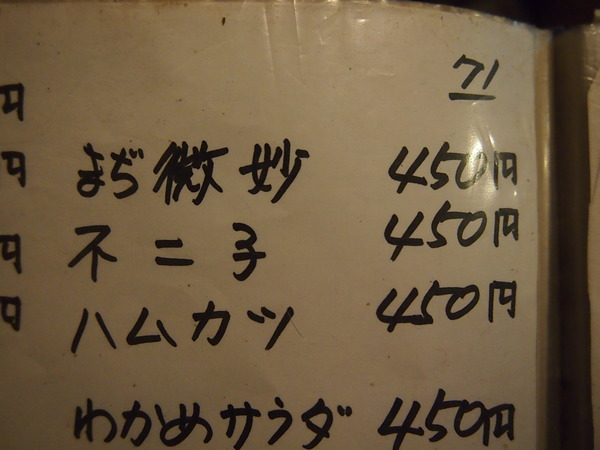 71
まぢ微妙 450円
不二子 450円
ハムカツ 450円
わかめサラダ 450円
円
円
円
円